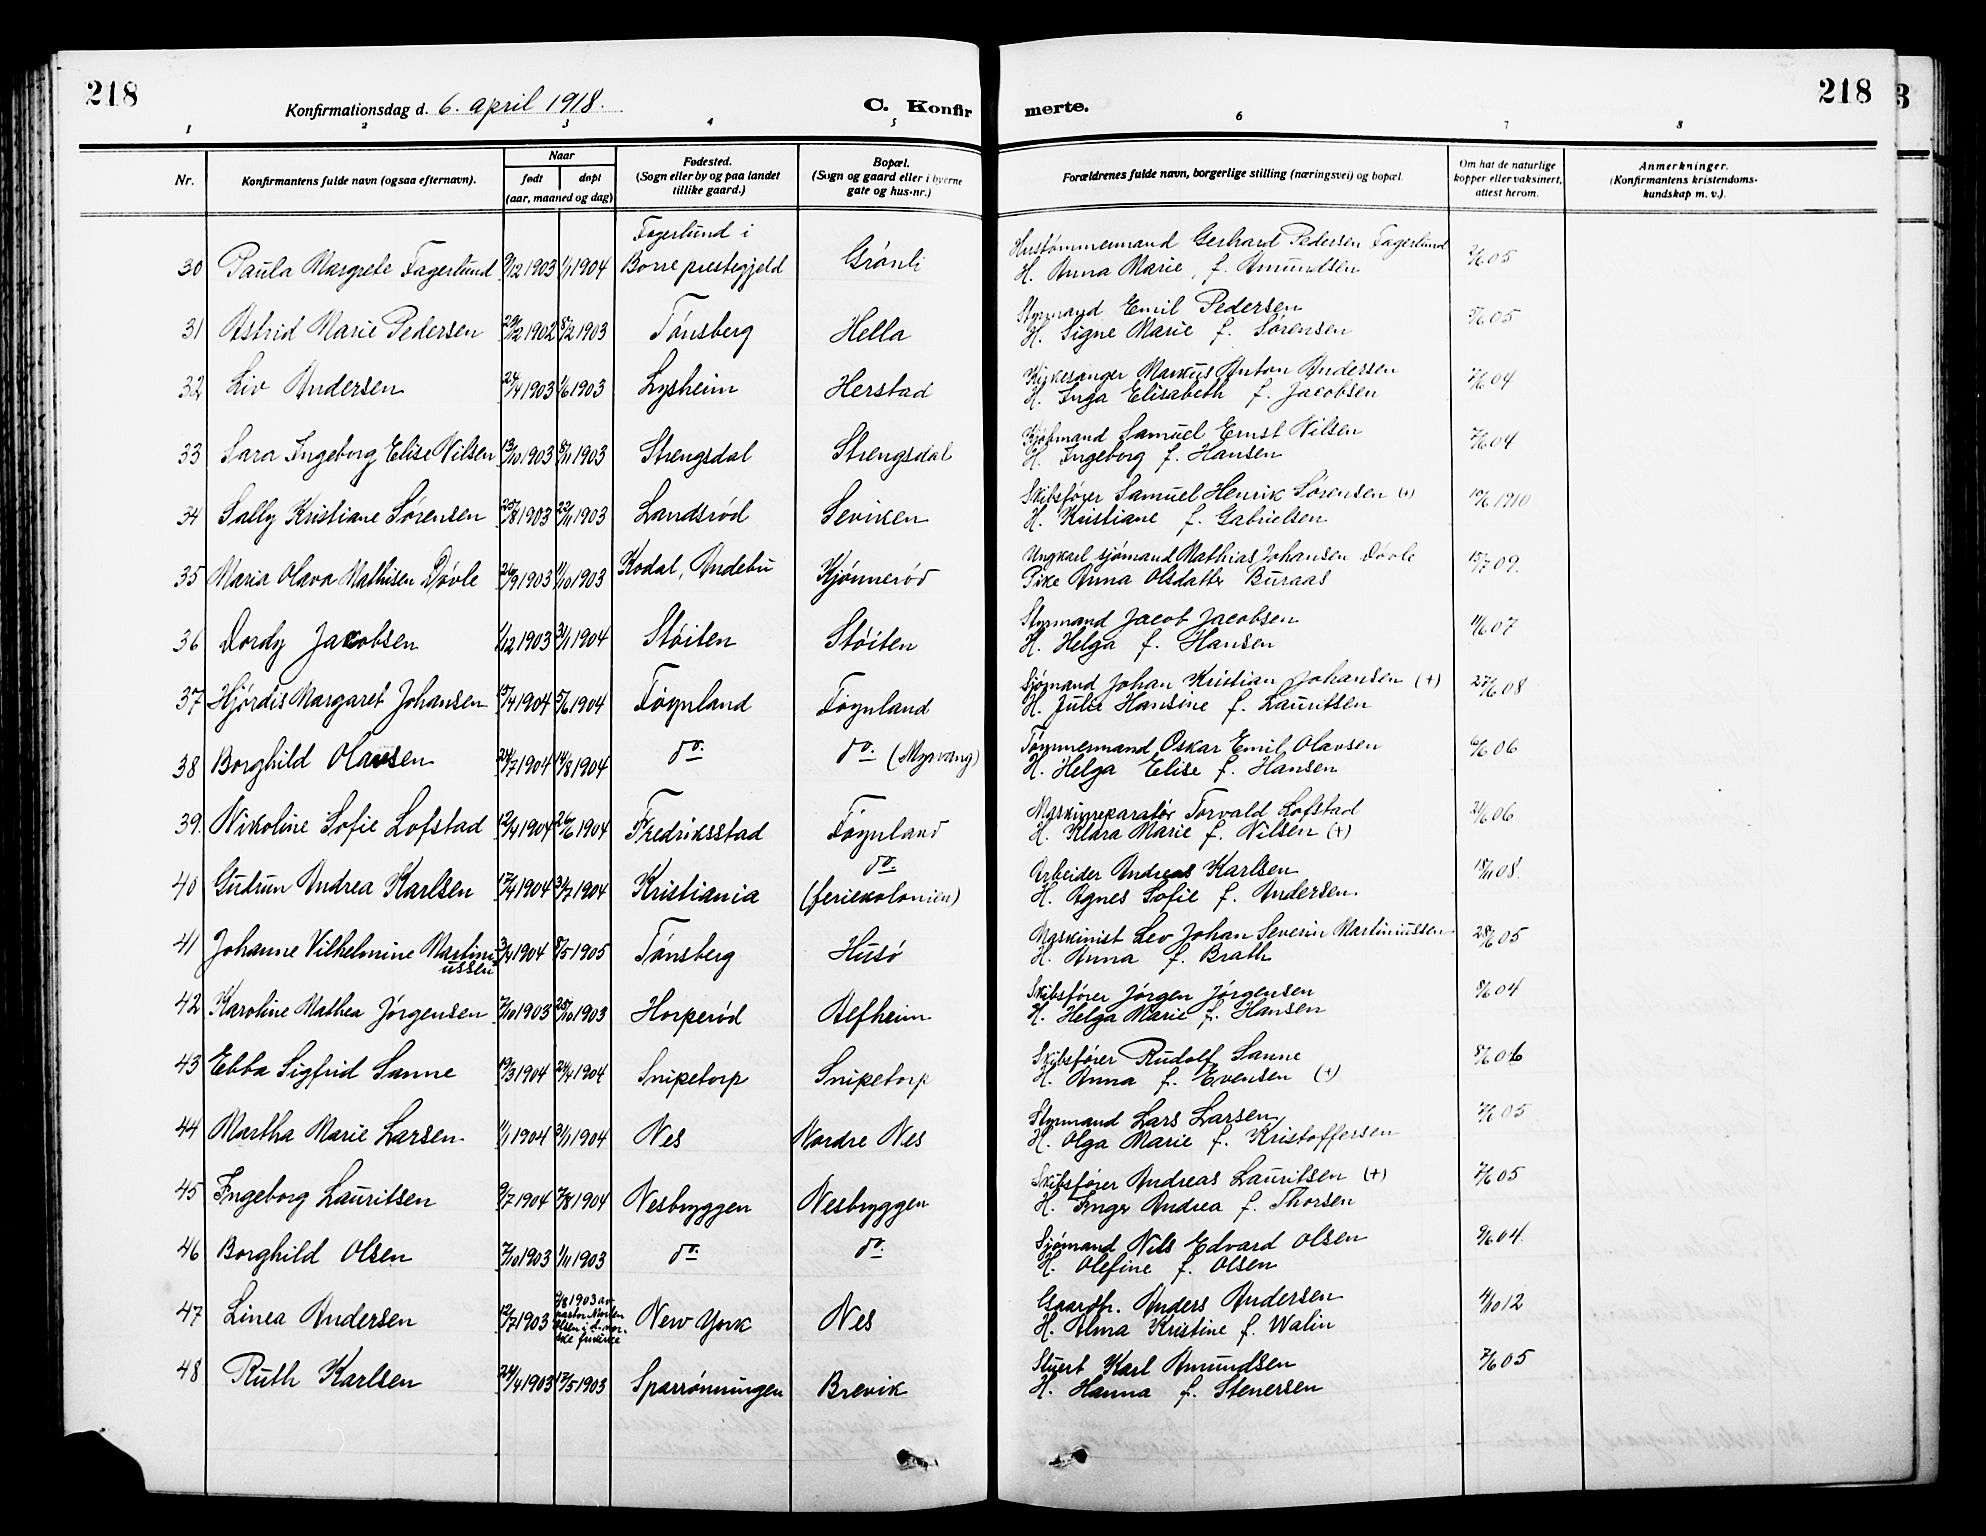 218
Konfirmationsdag d. 6. april 1918.
C. Konfir
merte.
218
1 2 3 4 5 6 7 8
Nr.
Konfirmantens fulde navn (ogsaa efternavn).
Naar
født
døpt
(aar, maaned og dag)
Fødested.
(Sogn eller by og paa landet
tillike gaard.)
Bopæl.
(Sogn og gaard eller i byerne
gate og hus-nr.)
Forældrenes fulde navn, borgerlige stilling (næringsvei) og bopæl.
Om hat de naturlige
kopper eller vaksinert,
attest herom.
Anmerkninger.
(Konfirmantens kristendoms-
kundskap m. v.)
Fagerlund i
30 Paula Margrete Fagerlund 9/12 1903 1/1 1904 Borre prestegjeld Grønli
Hustømmermand Gerhard Pedersen Fagerlund
H. Anna Marie, f. Amundsen
31 Astrid Marie Pedersen 29/12 1902 8/2 1903 Tønsberg Hella
Styrmand Emil Pedersen
H. Signe Marie f. Sørensen
32 Liv Andersen 24/4 1903 1/6 1903 Lysheim Herstad
Kirkesanger Markus Anton Andersen
H. Inga Elisabeth f. Jacobsen
33 Sara Ingeborg Elise Nilsen 13/10 1903 8/11 1903 Strengsdal Strengsdal
Kjøbmand Samuel Ernst Nilsen
H. Ingeborg f. Hansen
34 Sally Kristiane Sørensen 25/8 1903 22/11 1903 Landsrød Seviken
Skibsfører Samuel Henrik Sørensen (+) 10/6 1910
H. Kristiane f. Gabrielsen
35 Maria Olava Mathisen Døvle 26/9 1903 11/10 1903 Kodal, Andebu Kjønnerød
Ungkarl sjømand Mathias Johansen Døvle 15/7 09.
Pike Anna Olsdatter Buraas
36 Dordy Jacobsen 1/12 1903 31/1 1904 Støiten Støiten
Styrmand Jacob Jacobsen 11/6 07
H. Helga f. Hansen
37 Hjørdis Margaret Johansen 15/4 1904 5/6 1904 Føynland Føynland
Sjømand Johan Kristian Johansen (+) 27/6 08
H. Julie Hansine f. Lauritsen
38 Borghild Olavsen 24/7 1904 14/8 1904 do. do. (Myrvang)
Tømmermand Oskar Emil Olavsen 6/6 06
H. Helga Elise f. Hansen
39. Nikoline Sofie Lofstad 12/4 1904 26/6 1904 Fredriksstad Føynland
Maskinreparatør Torvald Lofstad 21/6 06
H. Klara Marie f. Nilsen (+)
do.
40 Gudrun Andrea Karlsen 17/4 1904 31/7 1904 Kristiania (feriekolonien)
Arbeider Andreas Karlsen 18/11 08.
H. Agnes Sofie f. Andersen.
41 Johanne Vilhelmine Martini- 1904 8/5 1905 Tønsberg Husø
ussen
Maskinist Lev Johan Severin Martiniussen 28/6 05
H. Anna f. Brath
42 Karoline Mathea Jørgensen 7/10 1903 25/10 1903 Horperød Aefheim
Skibsfører Jørgen Jørgensen 8/6 04
H. Helga Marie f. Hansen
43 Ebba Sigfrid Sanne 19/3 1904 24/4 1904 Snipetorp Snipetorp
Skibsfører Rudolf Sanne 8/6 06
H. Anna f. Evensen (+)
44 Martha Marie Larsen. 1/1 1904 31/1 1904 Nes Nordre Nes
Styrmand Lars Larsen
H. Olga Marie f. Kristoffersen
45 Ingeborg Lauritsen 9/7 1904 7/8 1904 Nesbryggen Nesbryggen
Skibsfører Andreas Lauritsen (+)
H. Inger Andrea f. Thorsen
46 Borghild Olsen 7/10 1903 1/11 1903 do. do.
Sjømand Nils Edvard Olsen 9/6 04.
H. Olefine f. Olsen
47 Linea Andersen 12/7 1903 1903 av New York Nes
pastor
Olsen i d. nor-
ske
Gaardbr. Anders Andersen 4/10 12
H. Alma Kristine f. Walin
48 Ruth Karlsen 24/4 1903 17/5 1903 Sparrønningen Brevik
Stuert Karl Amundsen 7/6 05
H. Hanna f. Stenersen